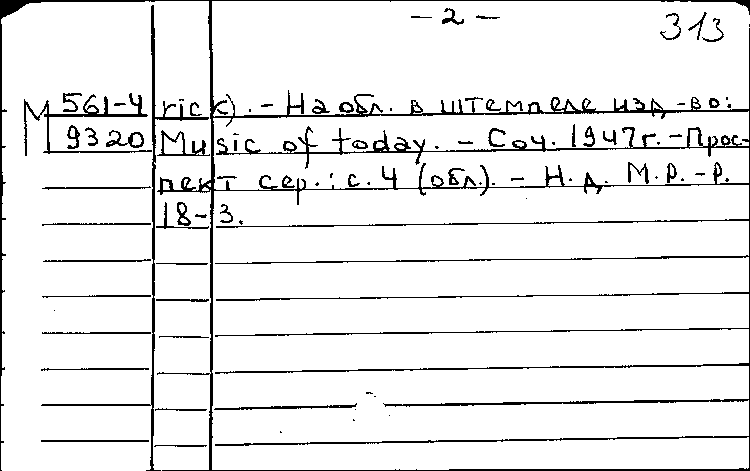 – 2 –
313
М 561-4 rick). – На обл. в штемпеле изд-во:
9320 Music of today. – Соч. 1947 г. – Прос-
пект сер.: с. 4 (обл.). – Н. д. М. Р. – Р.
18-3.